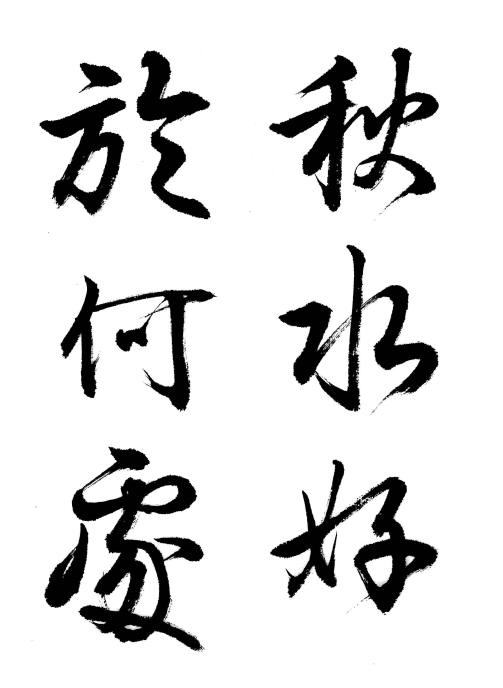 秋水好
於何處